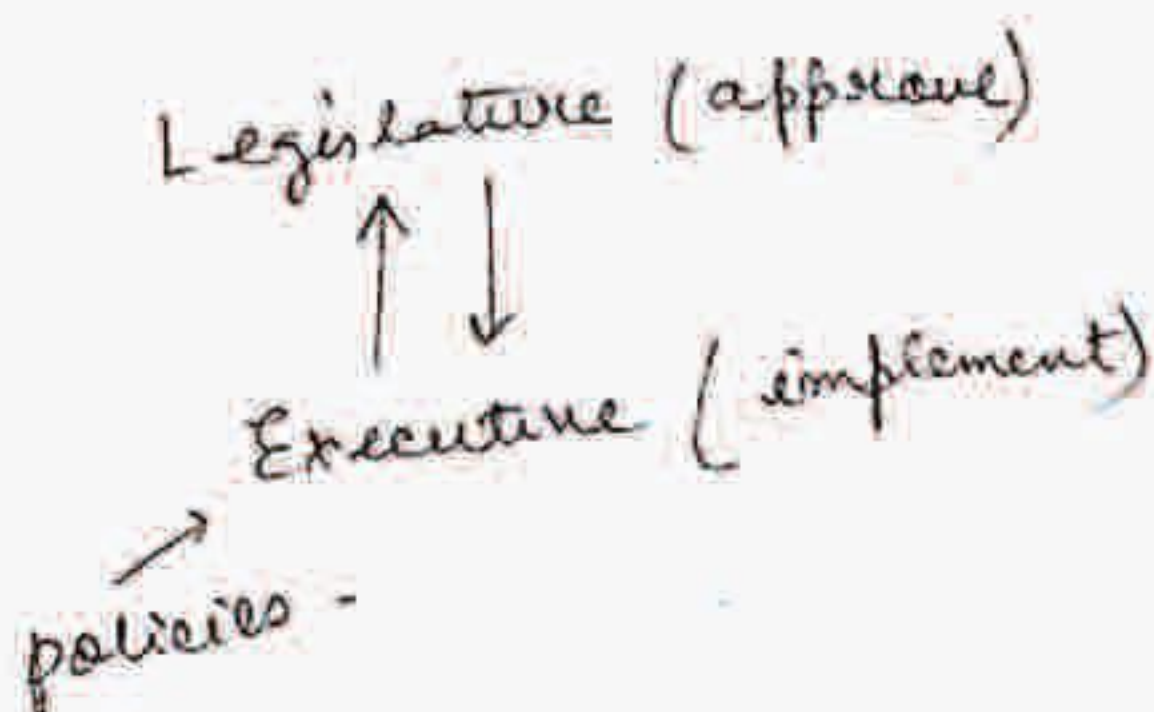 Legislature (approve)
Executive (implement)
policies -